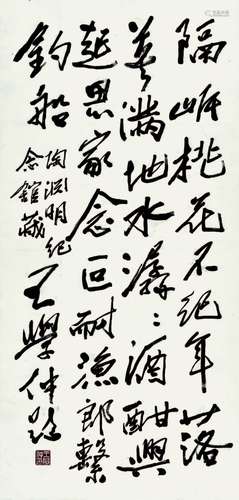 隔岸桃花不纪年落
英满地水潺潺酒酣兴
起思家念叵耐渔郎系
钓船
陶渊明纪
念馆藏
王学仲题